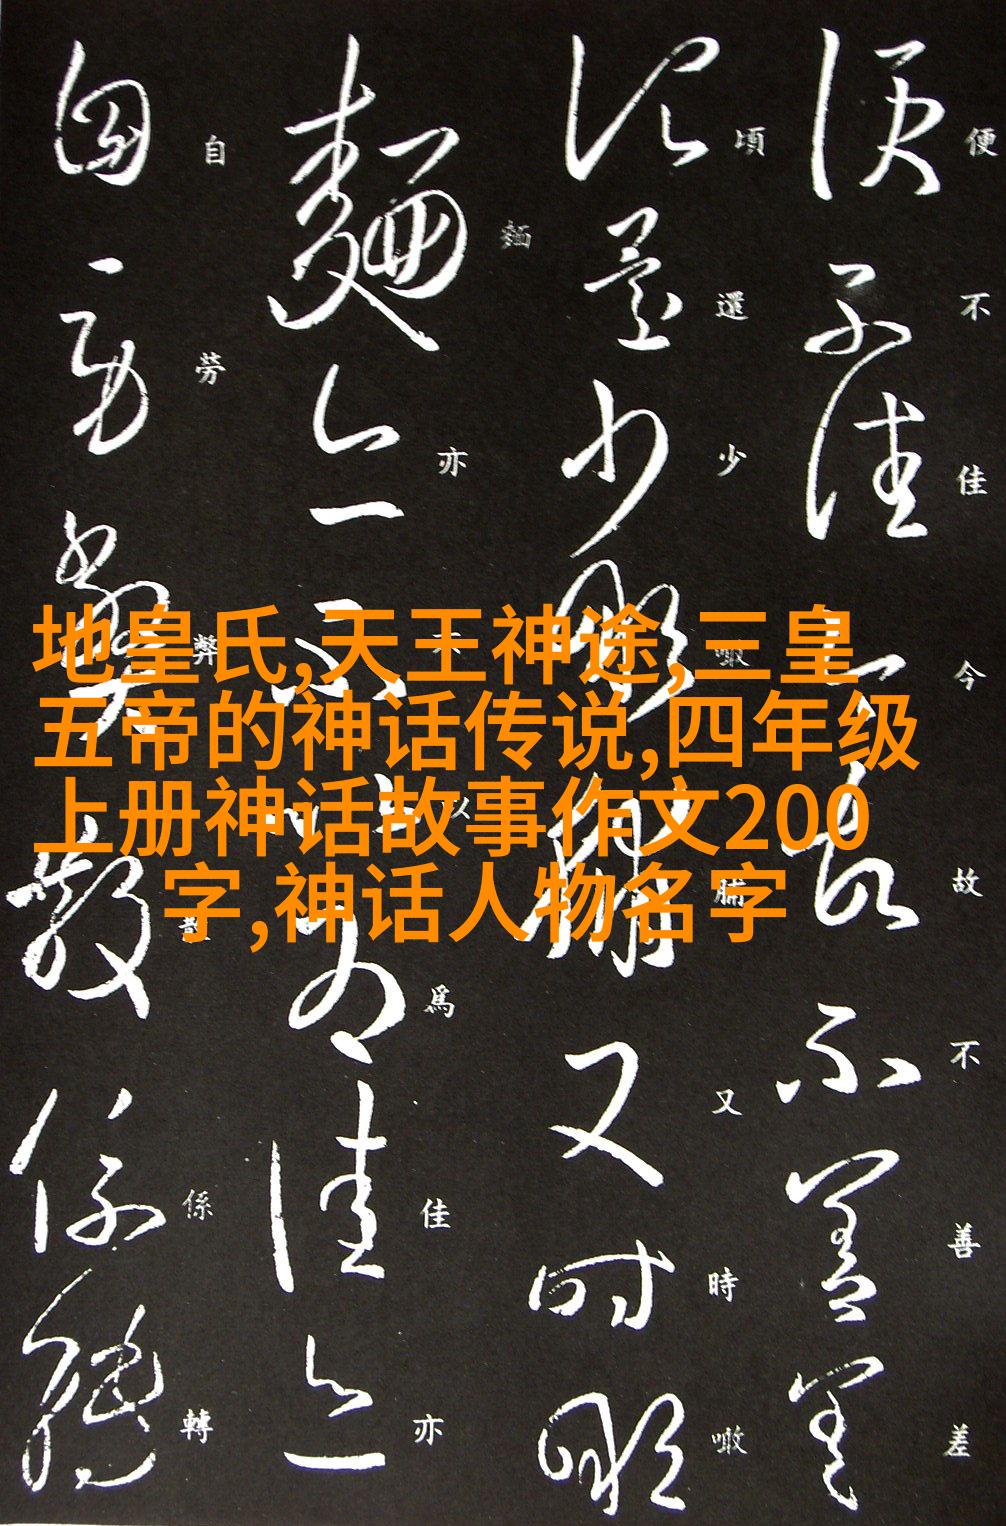 便不佳今故不善差
頃還少噉脯又時噉
麵亦不以爲佳亦
自勞弊散係轉
地皇氏,天王神途,三皇
五帝的神话传说,四年级
上册神话故事作文200
字,神话人物名字